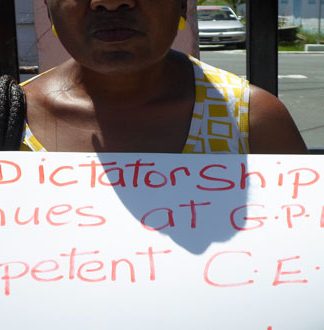 Dictatorship
nues at G.P.
petent C.E.